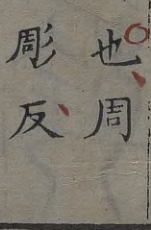 也周
彫反